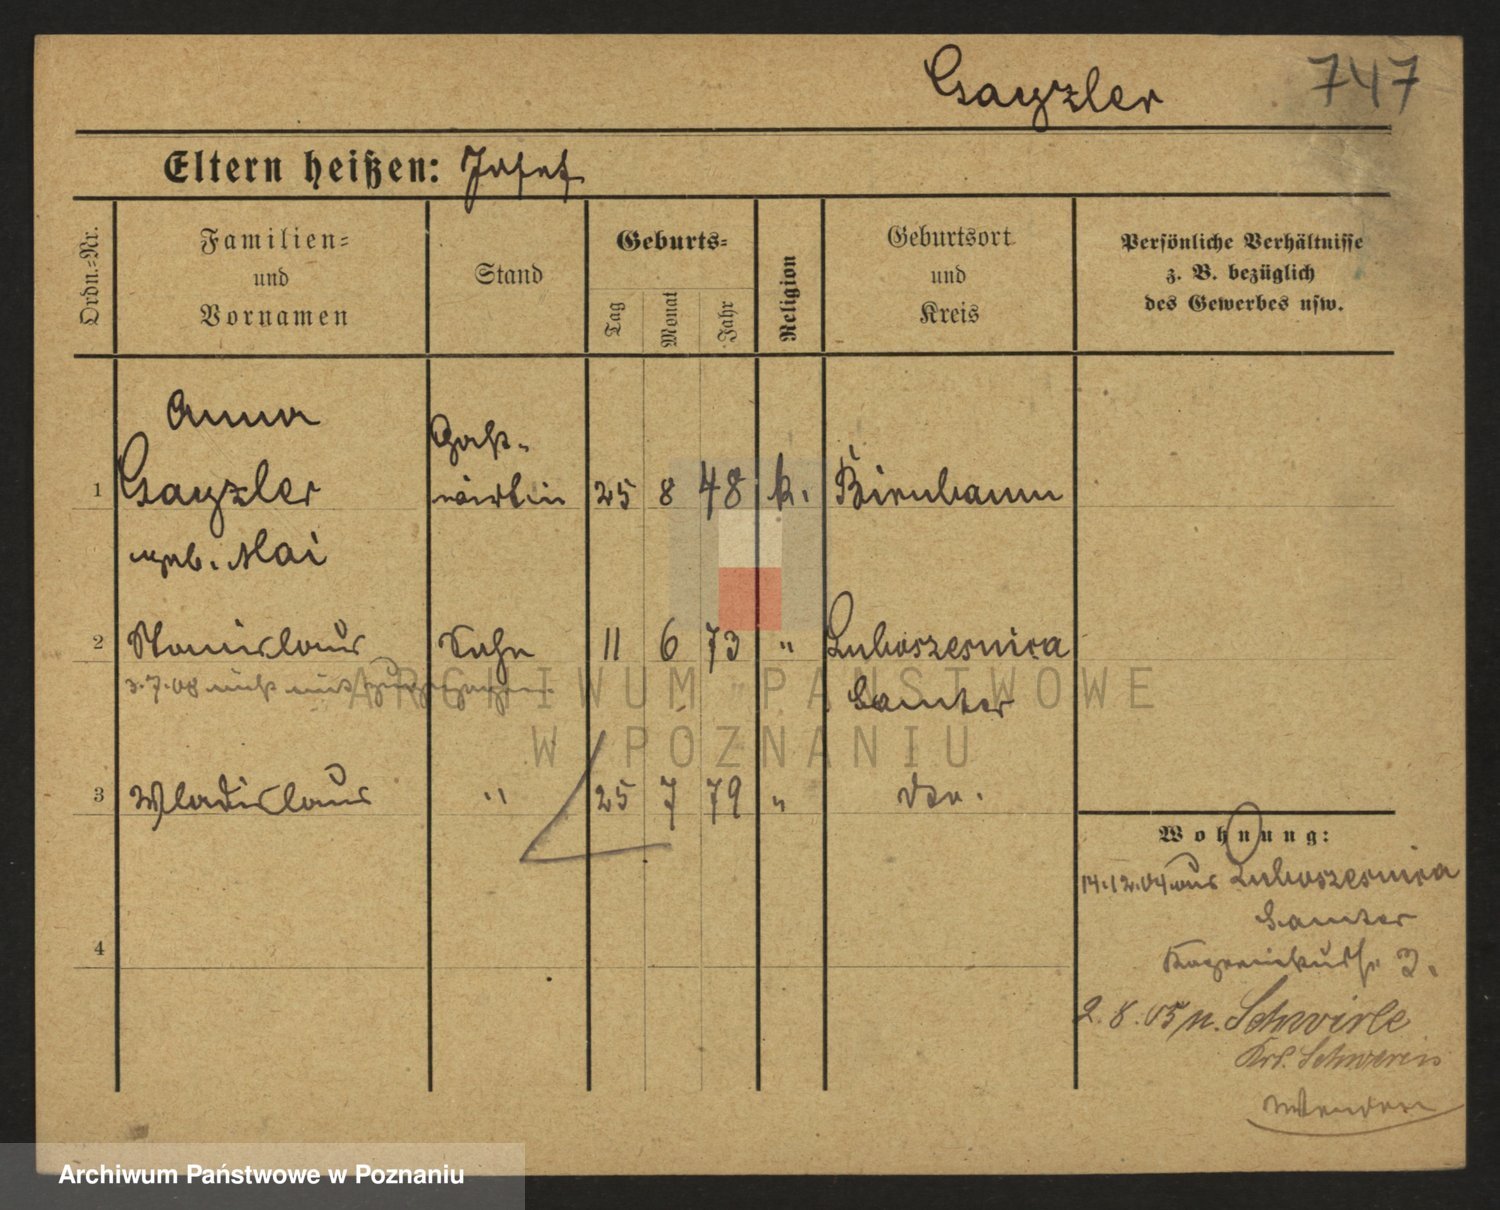 Gayzler 747
Eltern heißen: Josef
Ordn.-Nr.
Familien-
und
Vornamen
Stand
Geburts-
Tag
Monat
Jahr
Religion
Geburtsort
und
Kreis
Persönliche Verhältnisse
z. B. bezüglich
des Gewerbes usw.
Anna
Gast-
1 Gayzler wirtin 25 8 48 k. Birnbaum
geb. Mai
2 Stanislaus Sohn 11 6 73 " Luboszesnica
3.7.08 nicht mit
Samter
3 Wladislaus " 25 7 79 " do.
4
Wohnung:
14.12.04 aus Luboszesnica
Samter
3.
2.8.05 n. Schwirle
Krs. Schwerin
Wenden
ARCHIWUM PAŃSTWOWE
W POZNANIU
Archiwum Państwowe w Poznaniu